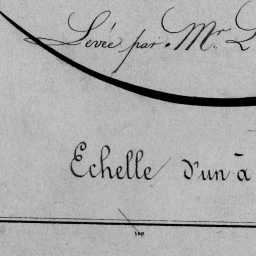 Levée par Mr
Echelle d'un à
100